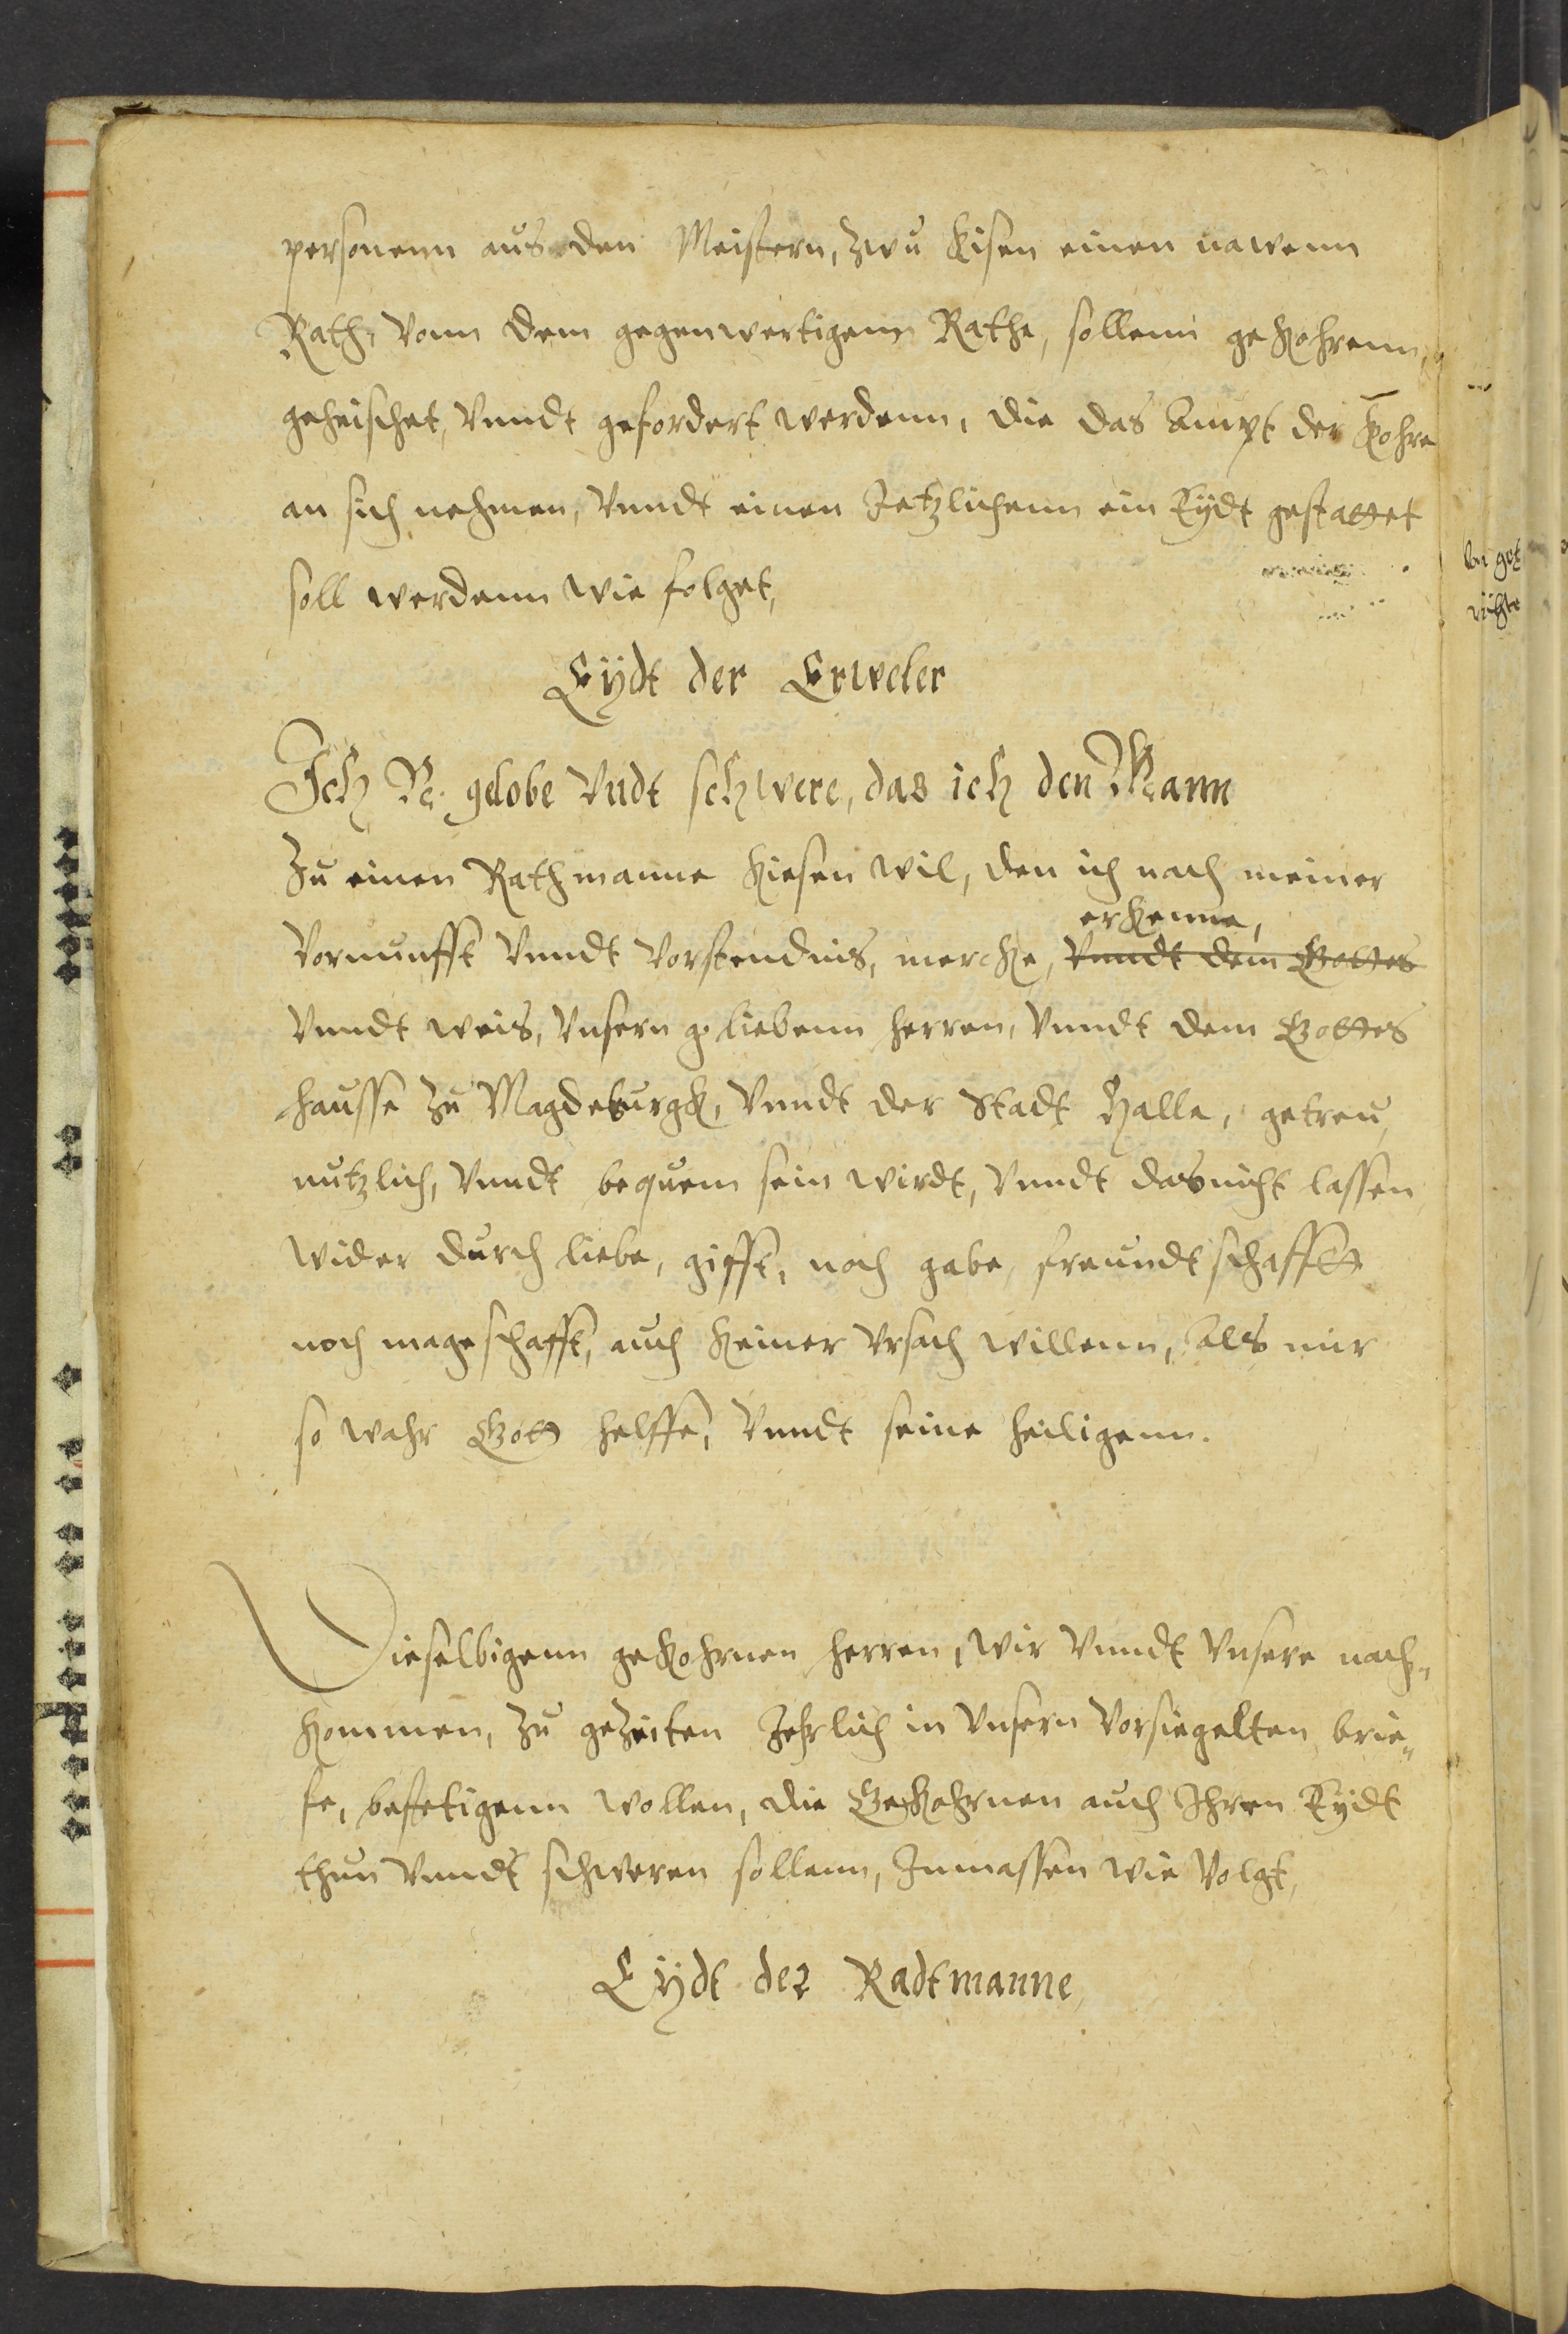 personenn aus den Meistern, zwu kisen einen nawenn
Rath, vonn dem gegenwertigenn Rathe, sollenn gekohrenn,
geheischet, vnndt gefordert werdenn, die das Ampt der Kohre
an sich nehmen, vnndt einen Jetzlichenn ein Eÿdt gestattet
soll werdenn wie folget,
Eÿdt der Erweler
Ich N. gelobe vndt schwere, das ich den Mann
zu einen Rathmanne kiesen wil, den ich nach meiner
erkenne,
vornunfft vnndt vorstendnis, mercke, vnndt dem Gottes
vnndt weis, vnsern g. liebenn herren, vnndt dem Gottes
hausse zu Magdeburgk, vnndt der Stadt Halle, getreu,
nutzlich, vnndt bequem sein wirdt, vnndt das nicht lassen
wider durch liebe, gifft, noch gabe, freundtschafft
noch mageschafft, auch keiner vrsach willenn, Als mir
so wahr Gott helffe, vnndt seine heiligenn.
Dieselbigenn gekohrnen herren, wir vnndt vnsere nach„
kommen, zu gezeiten Jehrlich in vnsern vorsiegelten brie„
fe, bestetigenn wollen, die Gekohrnen auch Ihren Eÿdt
thun vnndt schweren sollenn, Inmassen wie volgt,
Eÿdt der Radtmanne